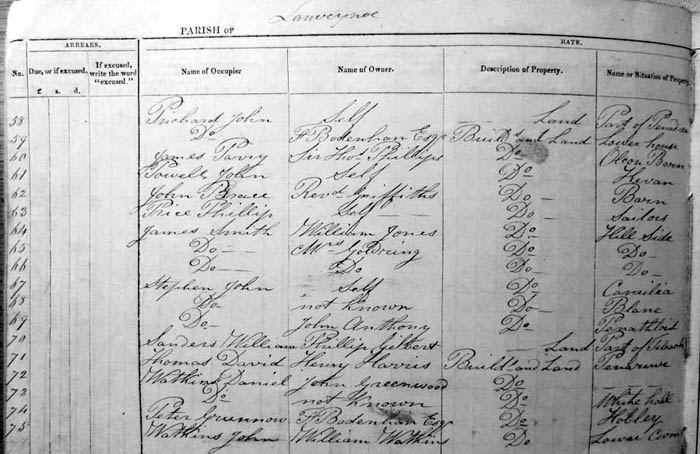 Lanveynoe
PARISH OF
ARREARS. RATE.
No. Due, or if excused. If excused, write the word "excused." Name of Occupier Name of Owner. Description of Property. Name or Situation of Property
£ s. d.
58 Prichard John Self Land Part of
59 Do F Bodenham Esqr Builds and Land Lower house
60 James Parry Sir Thos Phillips Do Olcon Barn
61 Powell John Self Do Kevan
62 John Brace Revd Griffiths Do Barn
63 Price Phillip Self Do Sailors
64 James Smith William Jones Do Hill Side
65 Do Mrs Goldring Do Do
66 Do Do Do Do
67 Stephen John Self Do
68 Do not Known Do Blane
69 Do John Anthony Do
70 Sanders William Phillip Gilbert Land Part of
71 Thomas David Henry Harris Builds and Land
72 Watkins Daniel John Greenwood Do
73 Do not Known Do White hall
74 Peter F Bodenham Esqr Do Hobley
75 Watkins John William Watkins Do Lower